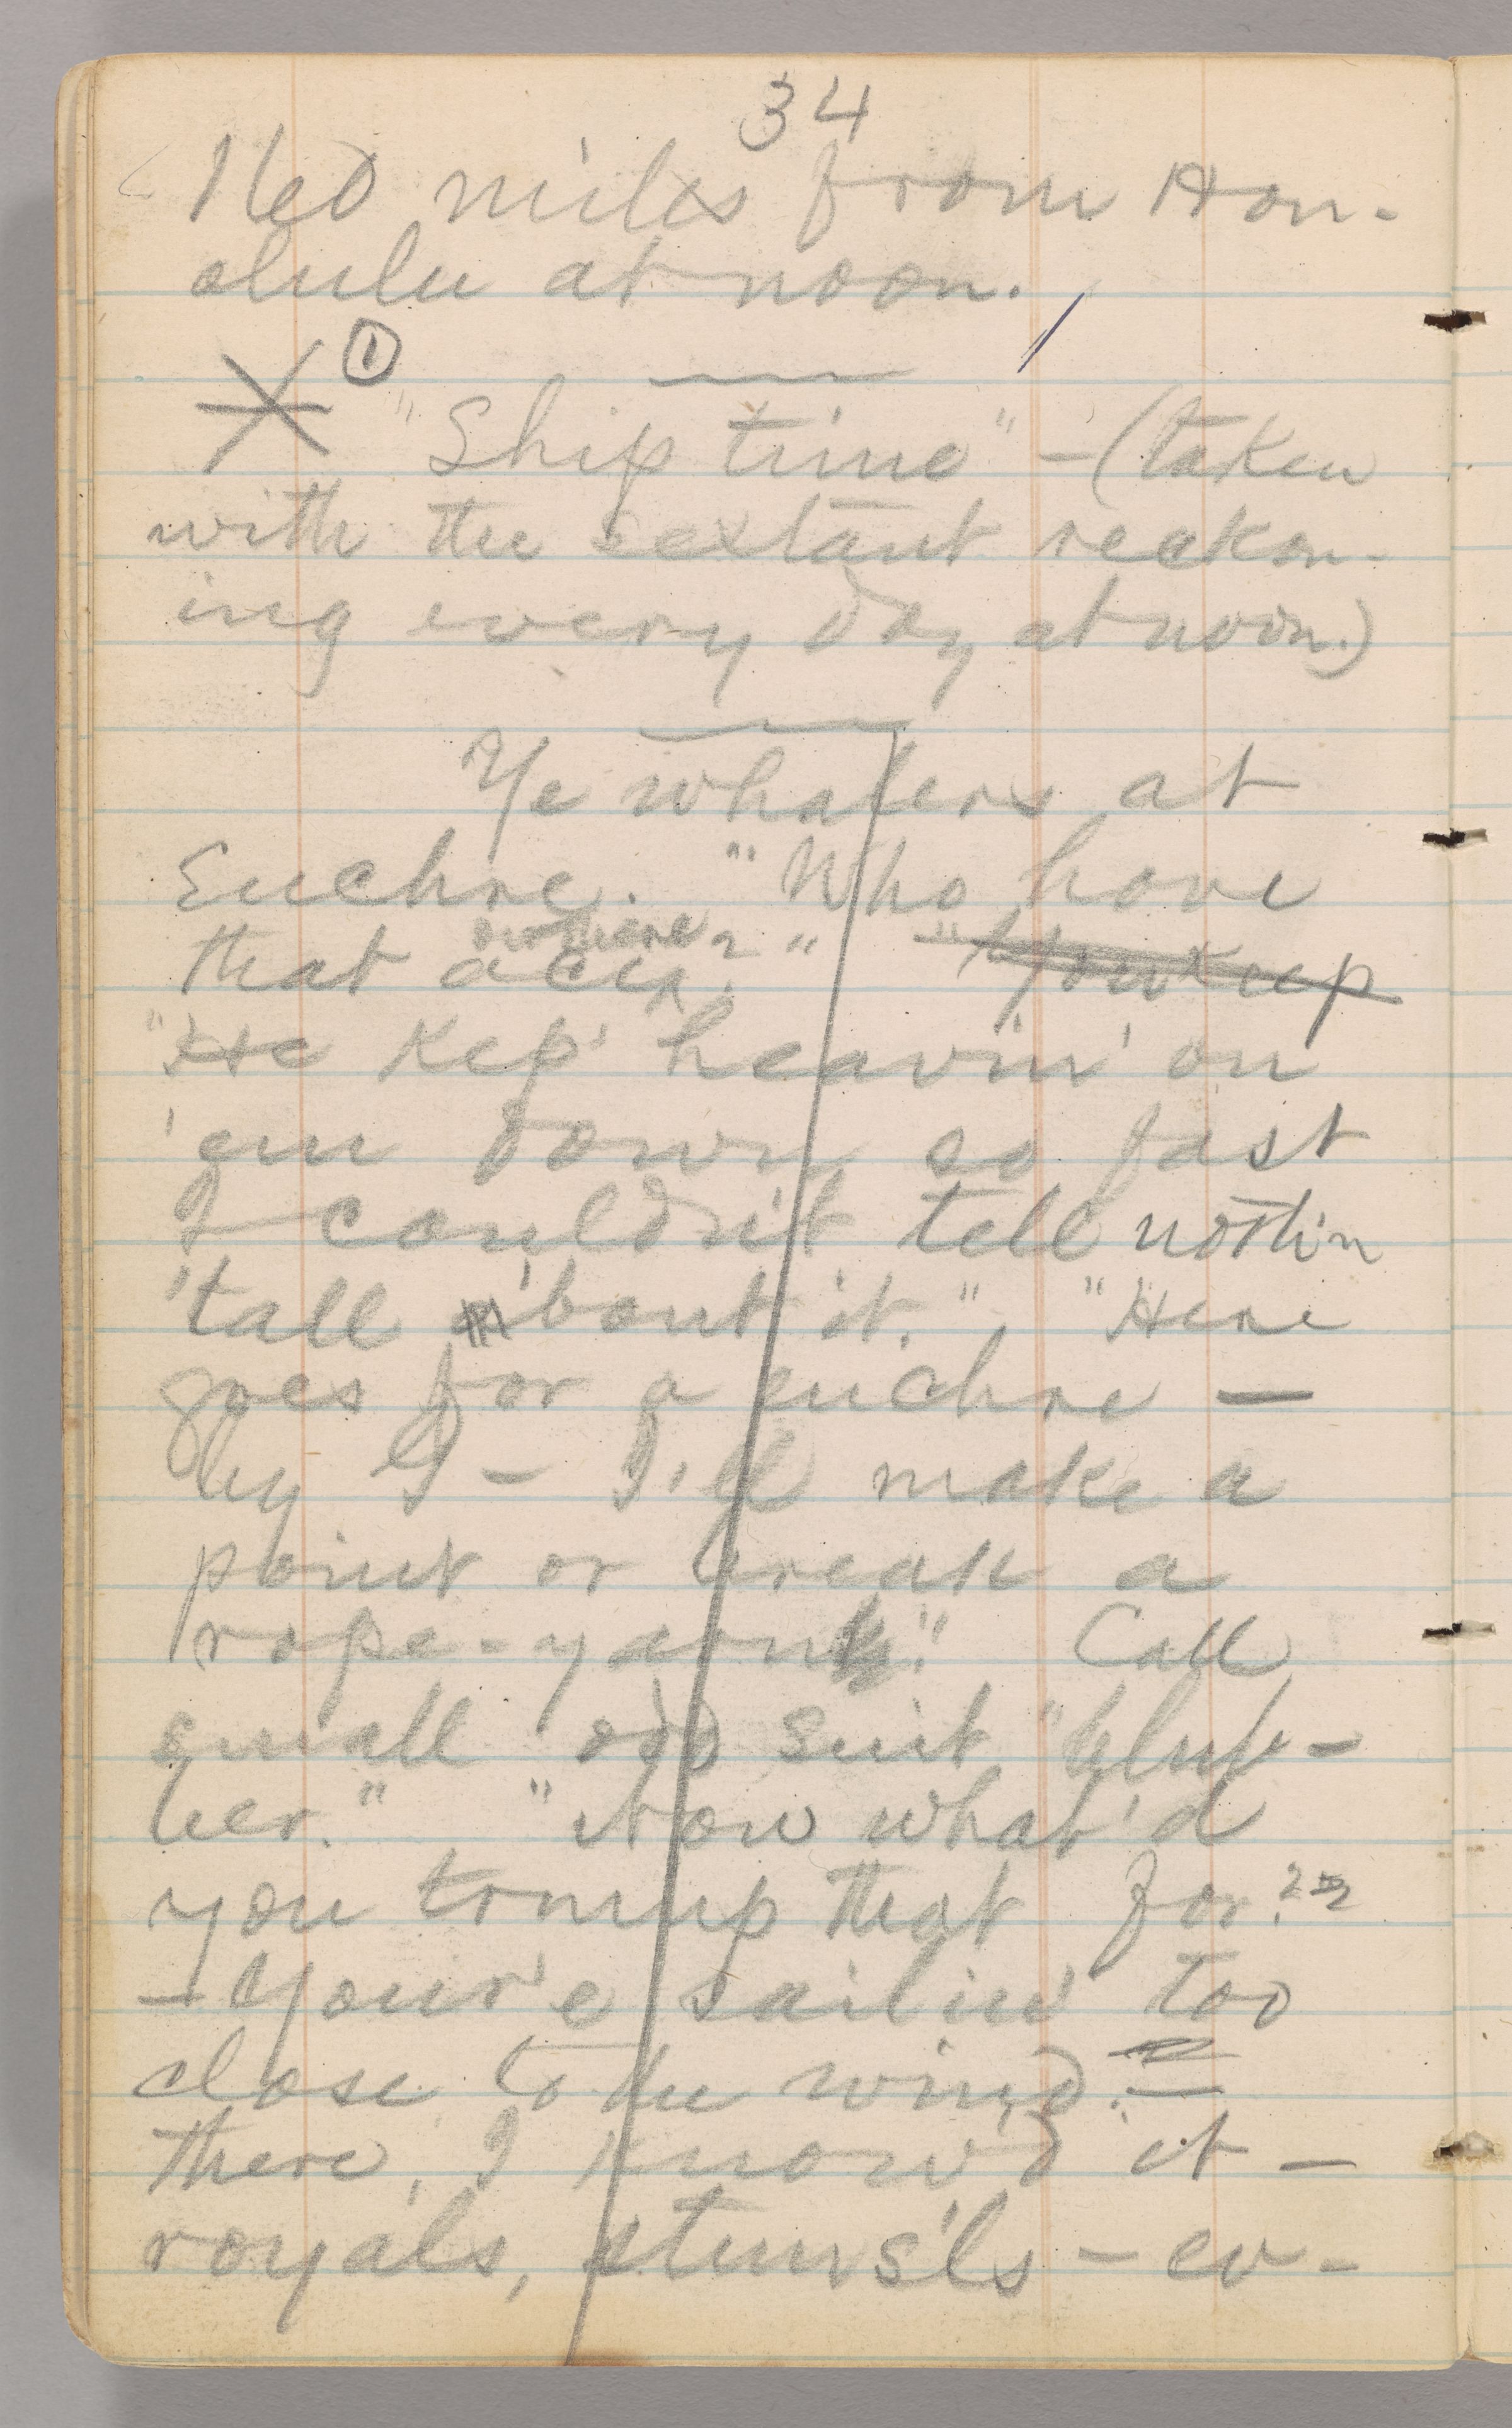 34
160 miles from Hon-
olulu at noon.
①
"Ship time" – (taken
with the sextant reckon-
ing every day at noon.)
Ye whalers at
Euchre. "Who hove
that ace
down here?" "You keep
"He kep' heavin' on
'em down so fast
I couldn't tell noth'n
'tall 'bout it." "Here
goes for a euchre —
by G— I'll make a
point or break a
rope-yarn." Call
small odd suit "blub-
ber." "Now what'd
you trump that for?
— You're sailin' too
close to the wind. —
there, I know'd it —
royals, stuns'ls – ev-